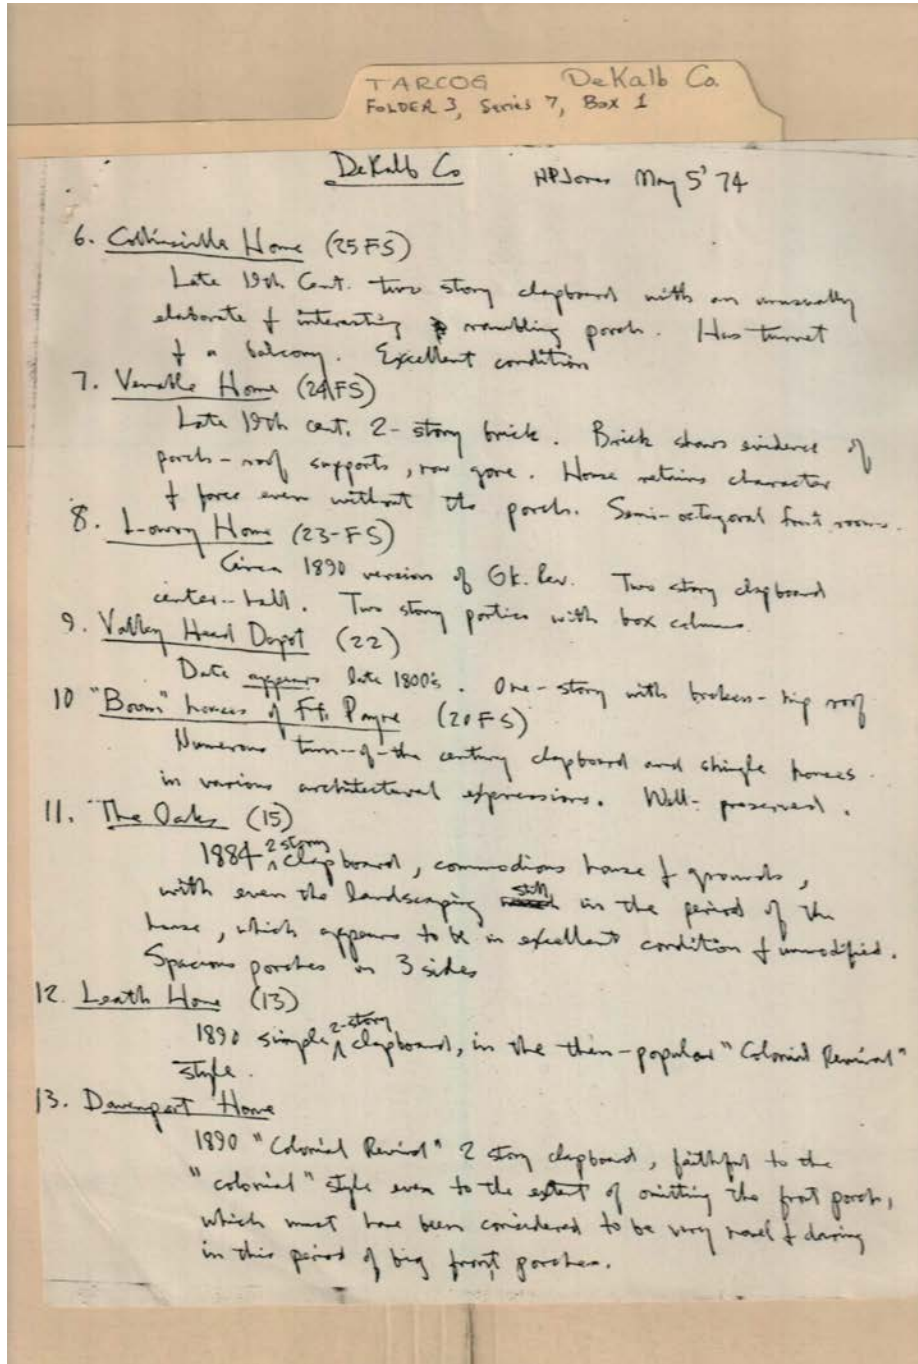 TARCOG DeKalb Co.
FOLDER 3, Series 7, Box 1
DeKalb Co HPJones May 5 '74
6. Collinsville Home (25FS)
Late 19th Cent. two story clapboard with an unusually
elaborate & interesting rambling porch. Has turret
& a balcony. Excellent condition
7. Venable Home (24FS)
Late 19th cent. 2-story brick. Brick shows evidence of
porch-roof supports, now gone. House retains character
& force even without the porch. Semi-octagonal front rooms.
8. Lowry Home (23-FS)
Circa 1890 version of Gk. Rev. Two story clapboard
center-hall. Two story portico with box columns.
9. Valley Head Depot (22)
Date appears late 1800's. One-story with broken-hip roof
10 "Boom" houses of Ft. Payne (20FS)
Numerous turn-of-the century clapboard and shingle houses
in various architectural expressions. Well-preserved.
11. The Oaks (15)
1884 2 story clapboard, commodious house & grounds,
with even the landscaping still in the period of the
house, which appears to be in excellent condition & unmodified.
Spacious porches on 3 sides
12. Leath Home (13)
1890 simple 2-story clapboard, in the then-popular "Colonial Revival"
style.
13. Davenport Home
1890 "Colonial Revival" 2 story clapboard, faithful to the
"colonial" style even to the extent of omitting the front porch,
which must have been considered to be very novel & daring
in this period of big front porches.